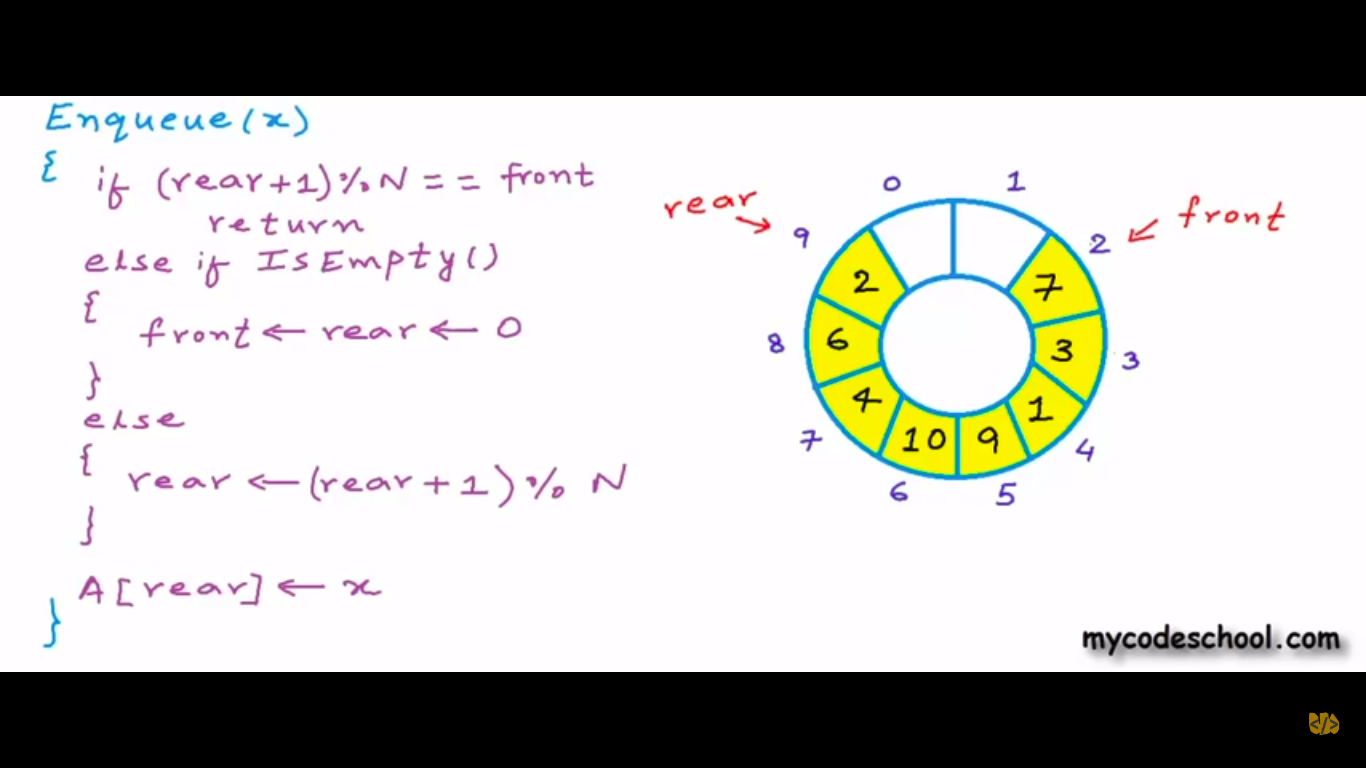 Enqueue(x)
{
if (rear+1)%N == front
return
else if IsEmpty()
{
front ← rear ← 0
}
else
{
rear ← (rear+1)% N
}
A[rear] ← x
}
0 1
rear front
9 2
2 7
8 6 3 3
4 1
10 9
7 4
6 5
mycodeschool.com